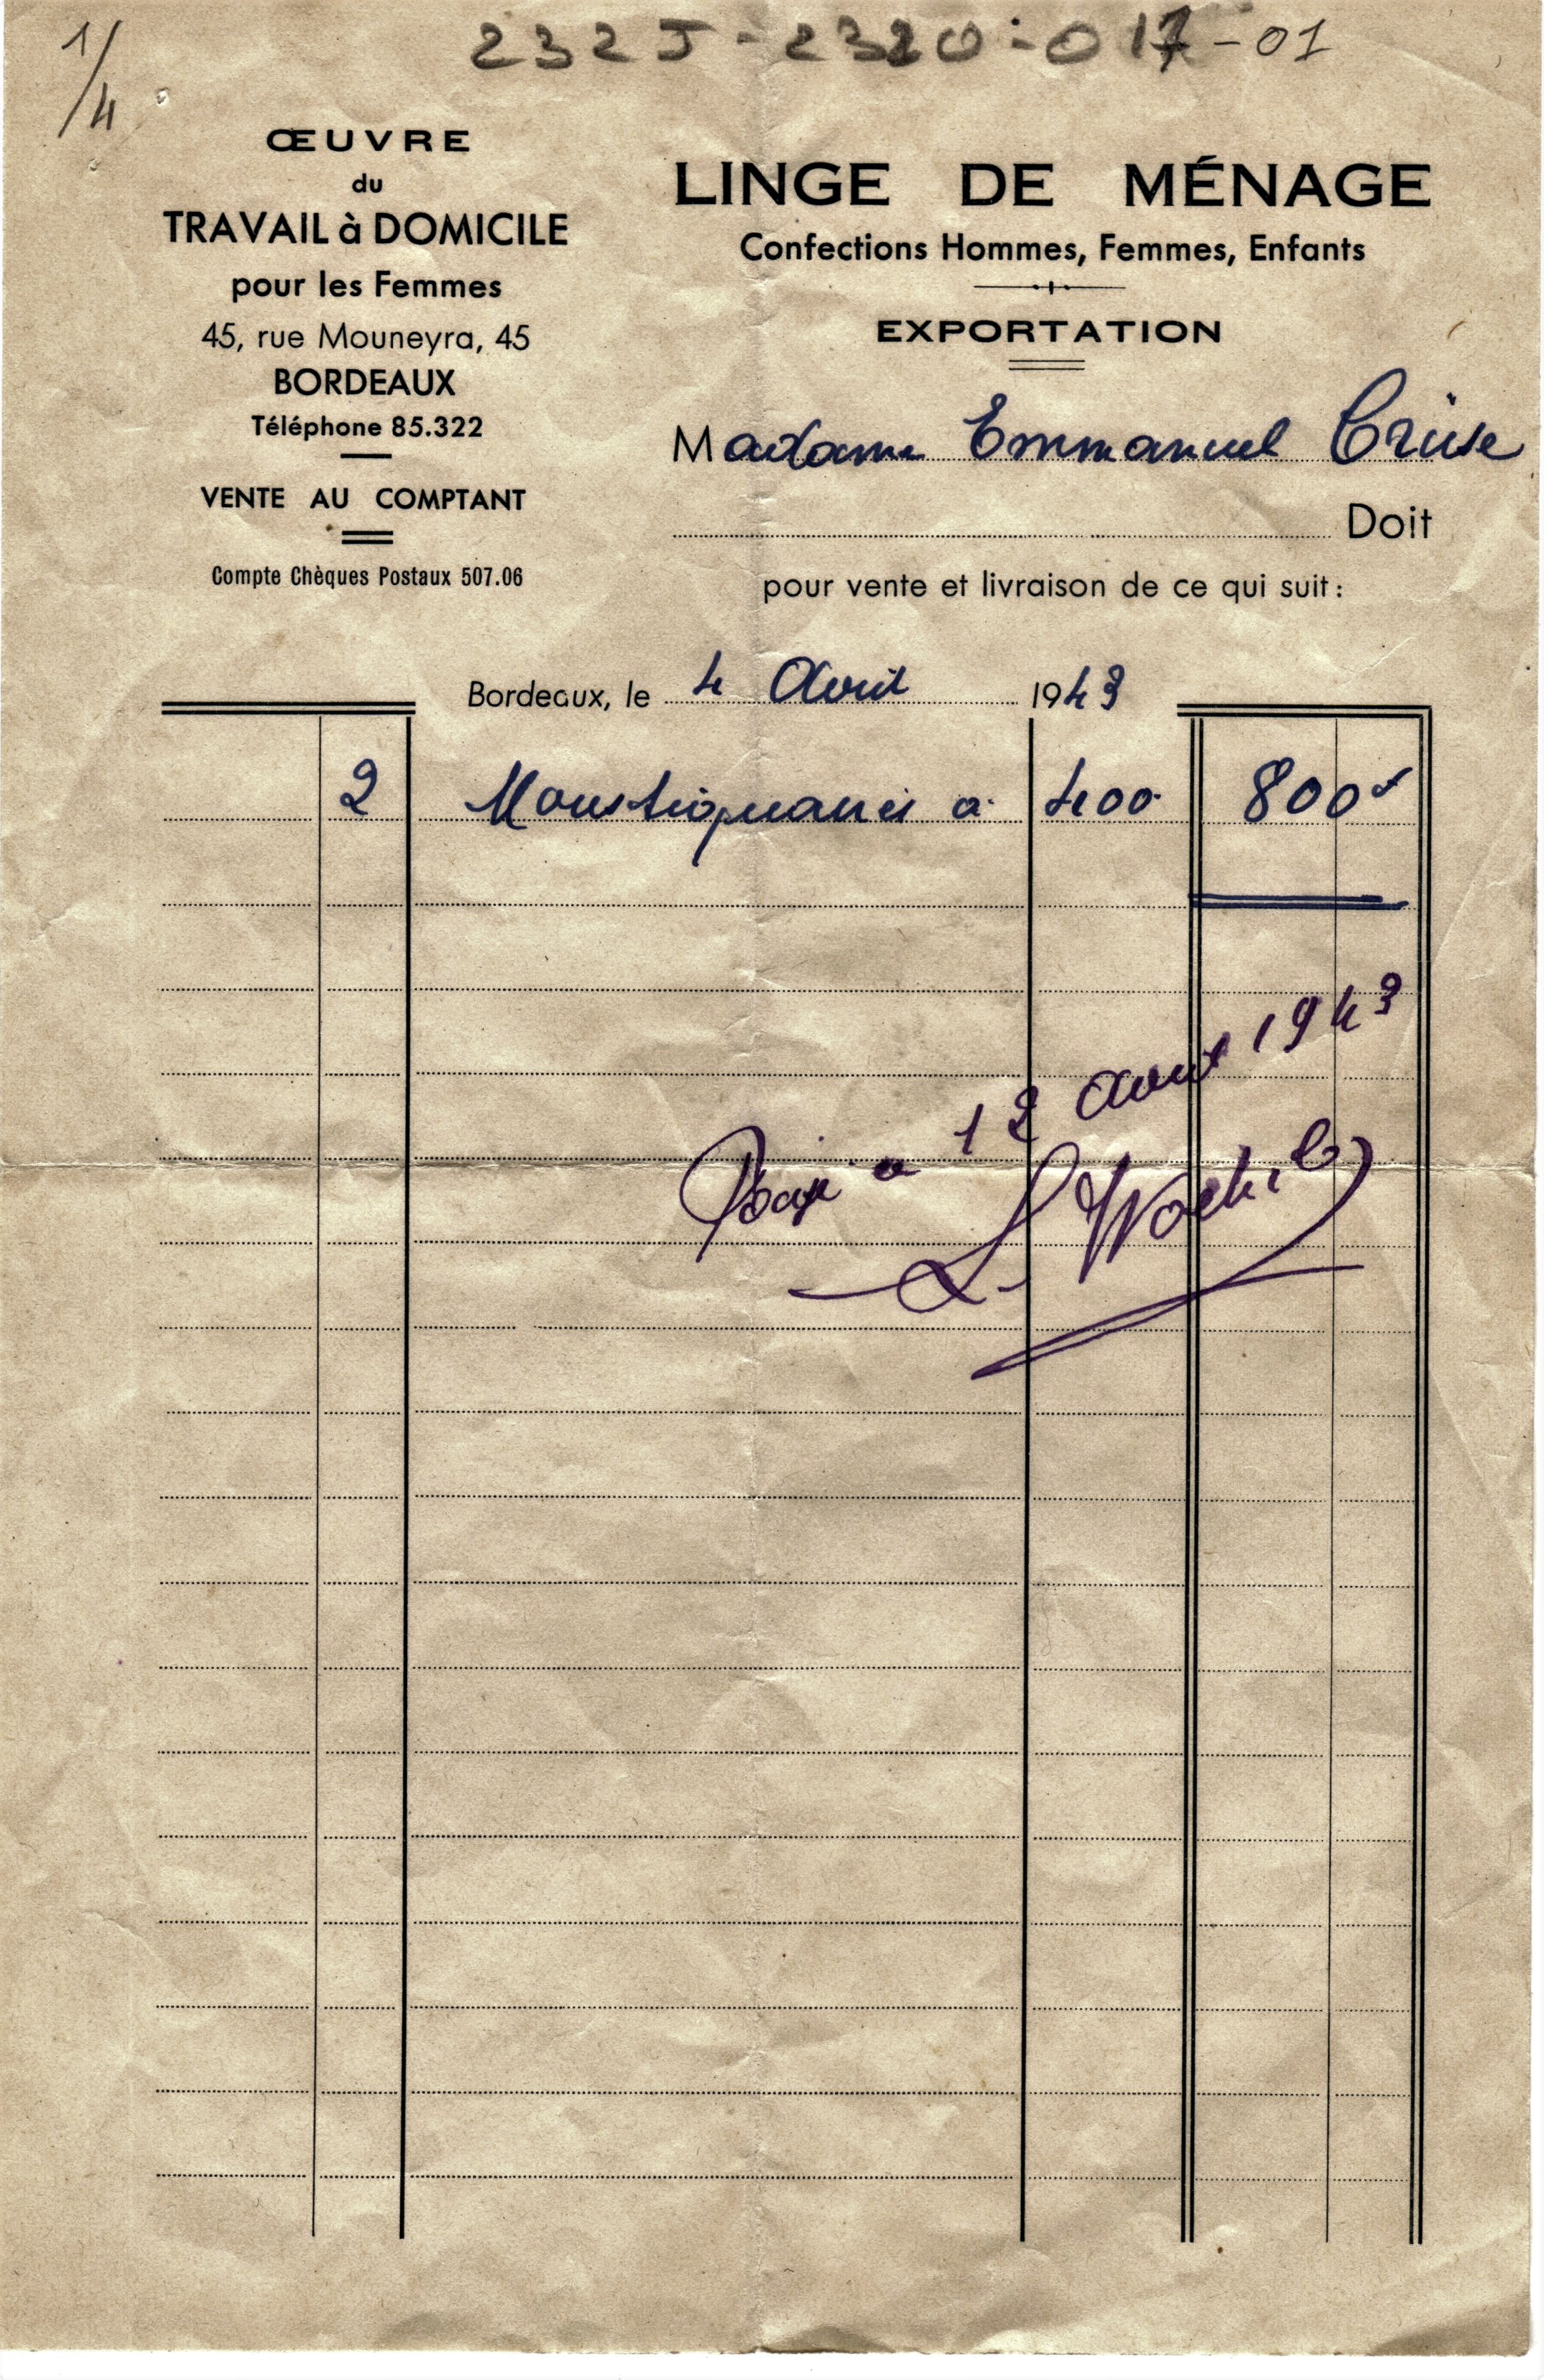 1/4
232J-2320-017-01
ŒUVRE
du
TRAVAIL à DOMICILE
pour les Femmes
45, rue Mouneyra, 45
BORDEAUX
Téléphone 85.322
VENTE AU COMPTANT
Compte Chèques Postaux 507.06
LINGE DE MÉNAGE
Confections Hommes, Femmes, Enfants
EXPORTATION
Madame Emmanuel Cruse
Doit
pour vente et livraison de ce qui suit :
Bordeaux, le 4 Avril 1943
2 Moustiquaires a 400 800
12 Aout 1943
L.